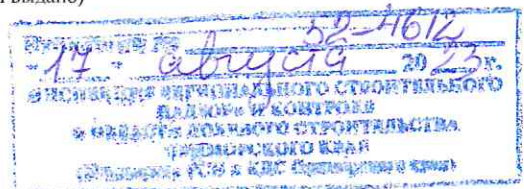 выдано)
52-4612
17 августа 2023г.
ИНСПЕКЦИЯ РЕГИОНАЛЬНОГО СТРОИТЕЛЬНОГО
НАДЗОРА И КОНТРОЛЯ
В ОБЛАСТИ ДОЛЕВОГО СТРОИТЕЛЬСТВА
ПРИМОРСКОГО КРАЯ
(Инспекция РСН и КДС Приморского края)